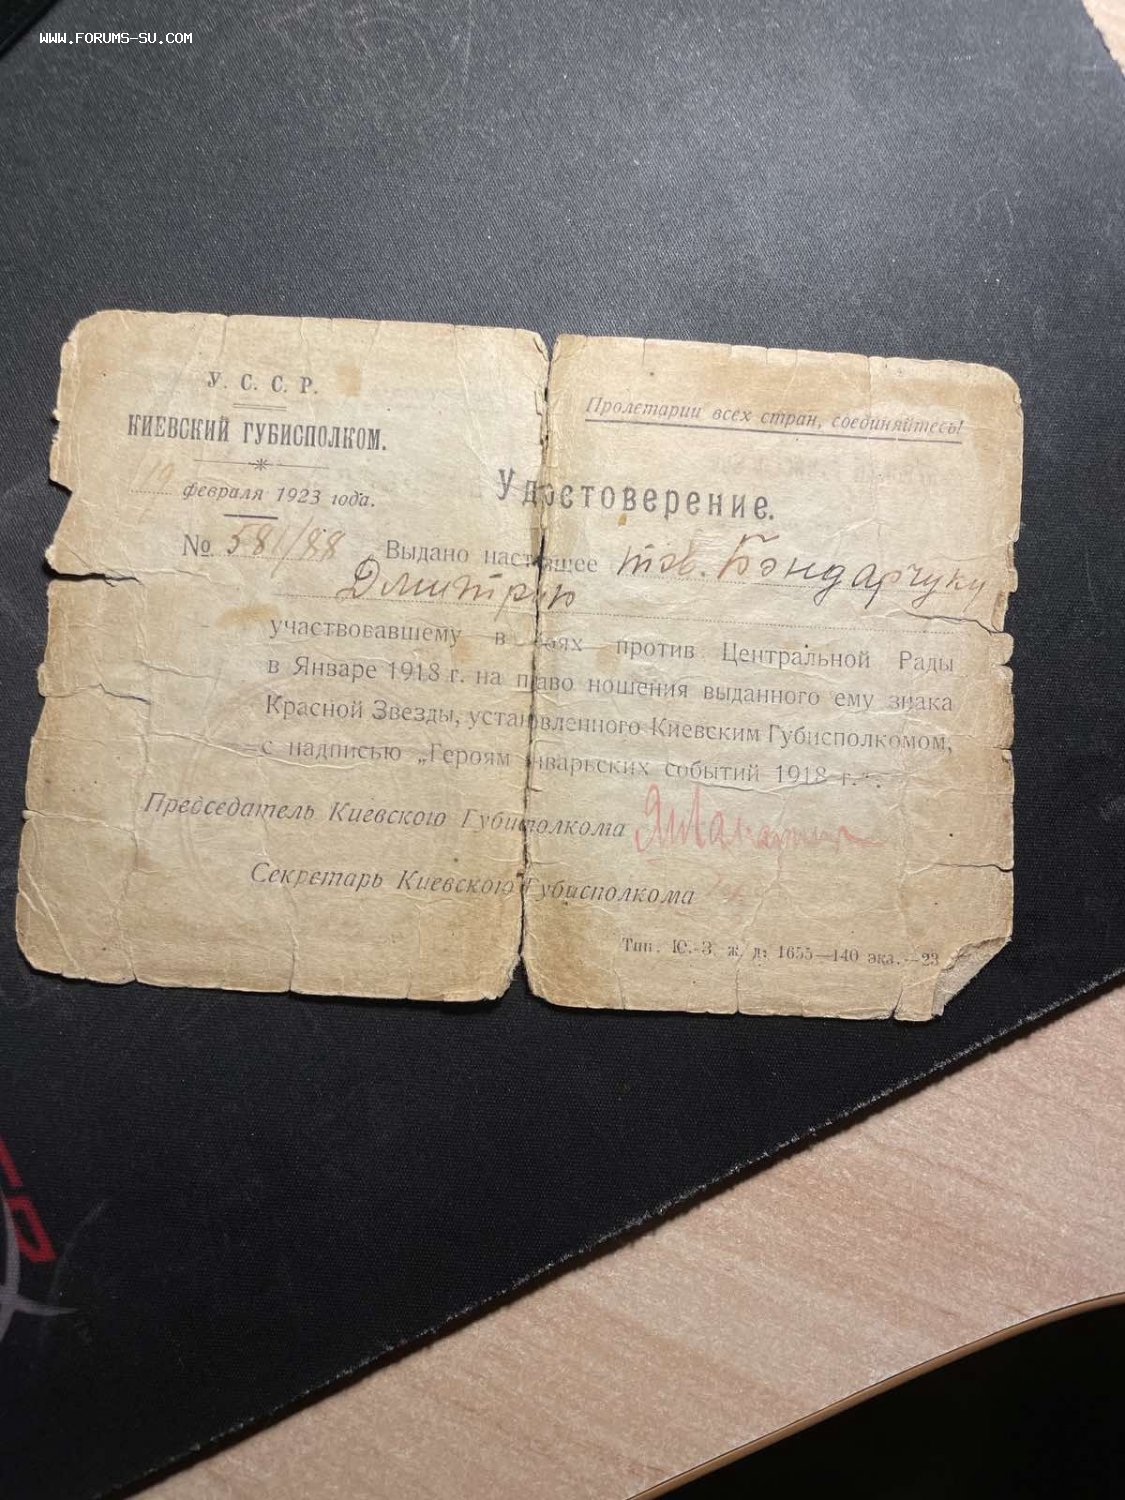 WWW.FORUMS-SU.COM
У. С. С. Р.
КИЕВСКИЙ ГУБИСПОЛКОМ.
19 февраля 1923 года.
Пролетарии всех стран, соединяйтесь!
Удостоверение.
№ 581/88 Выдано настоящее тов. Бондарчуку
Дмитрию
участвовавшему в боях против Центральной Рады
в Январе 1918 г. на право ношения выданного ему знака
Красной Звезды, установленного Киевским Губисполкомом,
с надписью „Героям январьских событий 1918 г.“.
Председатель Киевского Губисполкома
Секретарь Киевского Губисполкома
Тип. Ю.-З. ж. д. 1655—140 экз.—23